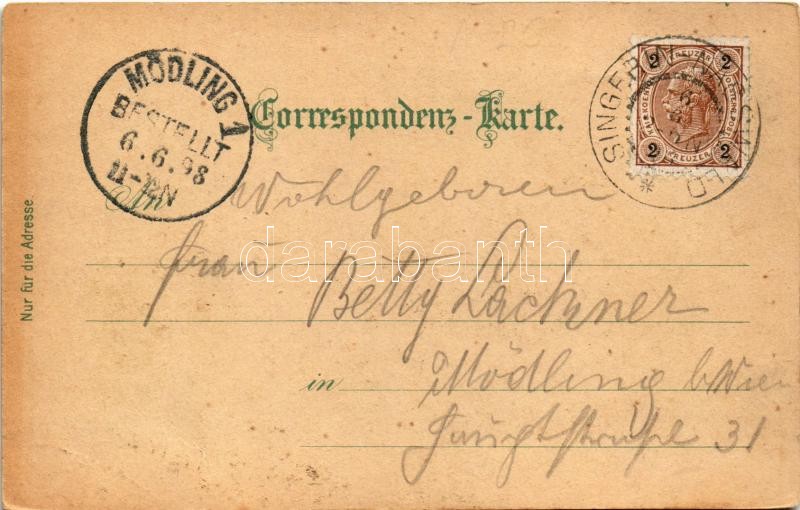 MÖDLING 1
BESTELLT
6.6.98
11-12N
2 KREUZER 2
2 KREUZER 2
SINGERIN NASSWALD
Correspondenz-Karte.
An Wohlgeboren
Frau Betty Lackner
in Mödling b. Wien
Hauptstraße 31
Nur für die Adresse.
darabanth